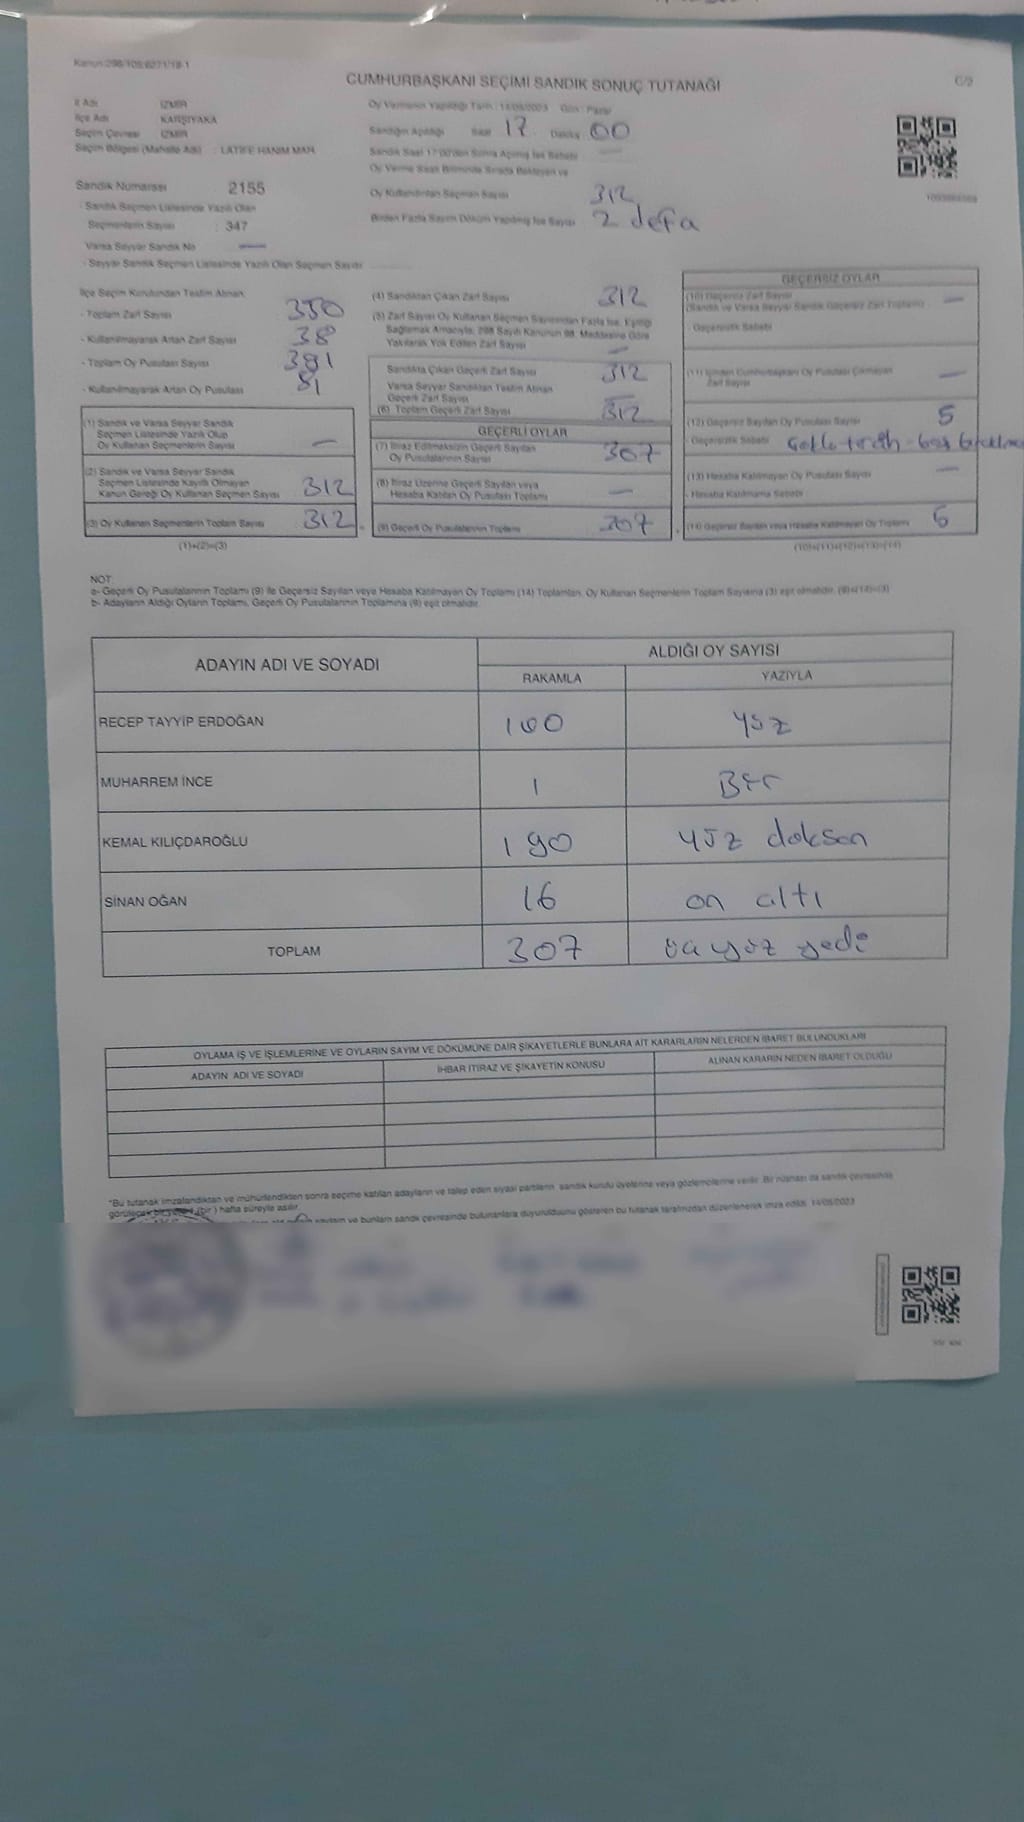 Kanun:298/105;6271/19-1
CUMHURBAŞKANI SEÇİMİ SANDIK SONUÇ TUTANAĞI
İl Adı İZMİR
İlçe Adı KARŞIYAKA
Seçim Çevresi İZMİR
Seçim Bölgesi (Mahalle Adı) : LATİFE HANIM MAH.
Sandık Numarası 2155
- Sandık Seçmen Listesinde Yazılı Olan
Seçmenlerin Sayısı : 347
Varsa Seyyar Sandık No —
- Seyyar Sandık Seçmen Listesinde Yazılı Olan Seçmen Sayısı
Oy Vermenin Yapıldığı Tarih : 14/05/2023 Gün : Pazar
Sandığın Açıldığı Saat 17 Dakika 00
Sandık Saat 17:00'den Sonra Açılmış İse Sebebi —
Oy Verme Saati Bitiminde Sırada Bekleyen ve
Oy Kullandırılan Seçmen Sayısı 312
Birden Fazla Sayım Döküm Yapılmış İse Sayısı 2 defa
İlçe Seçim Kurulundan Teslim Alınan
- Toplam Zarf Sayısı 350
- Kullanılmayarak Artan Zarf Sayısı 38
- Toplam Oy Pusulası Sayısı
- Kullanılmayarak Artan Oy Pusulası 81
(1) Sandık ve Varsa Seyyar Sandık
Seçmen Listesinde Yazılı Olup
Oy Kullanan Seçmenlerin Sayısı —
(2) Sandık ve Varsa Seyyar Sandık
Seçmen Listesinde Kayıtlı Olmayan
Kanun Gereği Oy Kullanan Seçmen Sayısı 312
(3) Oy Kullanan Seçmenlerin Toplam Sayısı 312
(1)+(2)=(3)
(4) Sandıktan Çıkan Zarf Sayısı 312
(5) Zarf Sayısı Oy Kullanan Seçmen Sayısından Fazla İse, Eşitliği
Sağlamak Amacıyla, 298 Sayılı Kanunun 98. Maddesine Göre
Yakılarak Yok Edilen Zarf Sayısı —
Sandıkta Çıkan Geçerli Zarf Sayısı 312
Varsa Seyyar Sandıktan Teslim Alınan
Geçerli Zarf Sayısı —
(6) Toplam Geçerli Zarf Sayısı 312
GEÇERLİ OYLAR
(7) İtiraz Edilmeksizin Geçerli Sayılan
Oy Pusulalarının Sayısı 307
(8) İtiraz Üzerine Geçerli Sayılan veya
Hesaba Katılan Oy Pusulası Toplamı —
(9) Geçerli Oy Pusulalarının Toplamı 307
GEÇERSİZ OYLAR
(10) Geçersiz Zarf Sayısı
(Sandık ve Varsa Seyyar Sandık Geçersiz Zarf Toplamı) —
- Geçersizlik Sebebi
(11) İçinden Cumhurbaşkanı Oy Pusulası Çıkmayan
Zarf Sayısı —
(12) Geçersiz Sayılan Oy Pusulası Sayısı 5
- Geçersizlik Sebebi
(13) Hesaba Katılmayan Oy Pusulası Sayısı —
- Hesaba Katılmama Sebebi
(14) Geçersiz Sayılan veya Hesaba Katılmayan Oy Toplamı
(10)+(11)+(12)+(13)=(14)
NOT
a- Geçerli Oy Pusulalarının Toplamı (9) ile Geçersiz Sayılan veya Hesaba Katılmayan Oy Toplamı (14) Toplamları, Oy Kullanan Seçmenlerin Toplam Sayısına (3) eşit olmalıdır. (9)+(14)=(3)
b- Adayların Aldığı Oyların Toplamı, Geçerli Oy Pusulalarının Toplamına (9) eşit olmalıdır.
ADAYIN ADI VE SOYADI ALDIĞI OY SAYISI
RAKAMLA YAZIYLA
RECEP TAYYİP ERDOĞAN 100 yüz
MUHARREM İNCE 1 Bir
KEMAL KILIÇDAROĞLU 190 yüz doksan
SİNAN OĞAN 16 on altı
TOPLAM 307 üçyüz yedi
OYLAMA İŞ VE İŞLEMLERİNE VE OYLARIN SAYIM VE DÖKÜMÜNE DAİR ŞİKAYETLERLE BUNLARA AİT KARARLARIN NELERDEN İBARET BULUNDUKLARI
ADAYIN ADI VE SOYADI İHBAR İTİRAZ VE ŞİKAYETİN KONUSU ALINAN KARARIN NEDEN İBARET OLDUĞU
*Bu tutanak imzalandıktan ve mühürlendikten sonra seçime katılan adayların ve talep eden siyasi partilerin sandık kurulu üyelerine veya gözlemcilerine verilir. Bir nüshası da sandık çevresinde
görülecek bir yere (bir) hafta süreyle asılır.
sayısını ve bunların sandık çevresinde bulunanlara duyurulduğunu gösteren bu tutanak tarafımızdan düzenlenerek imza edildi. 14/05/2023